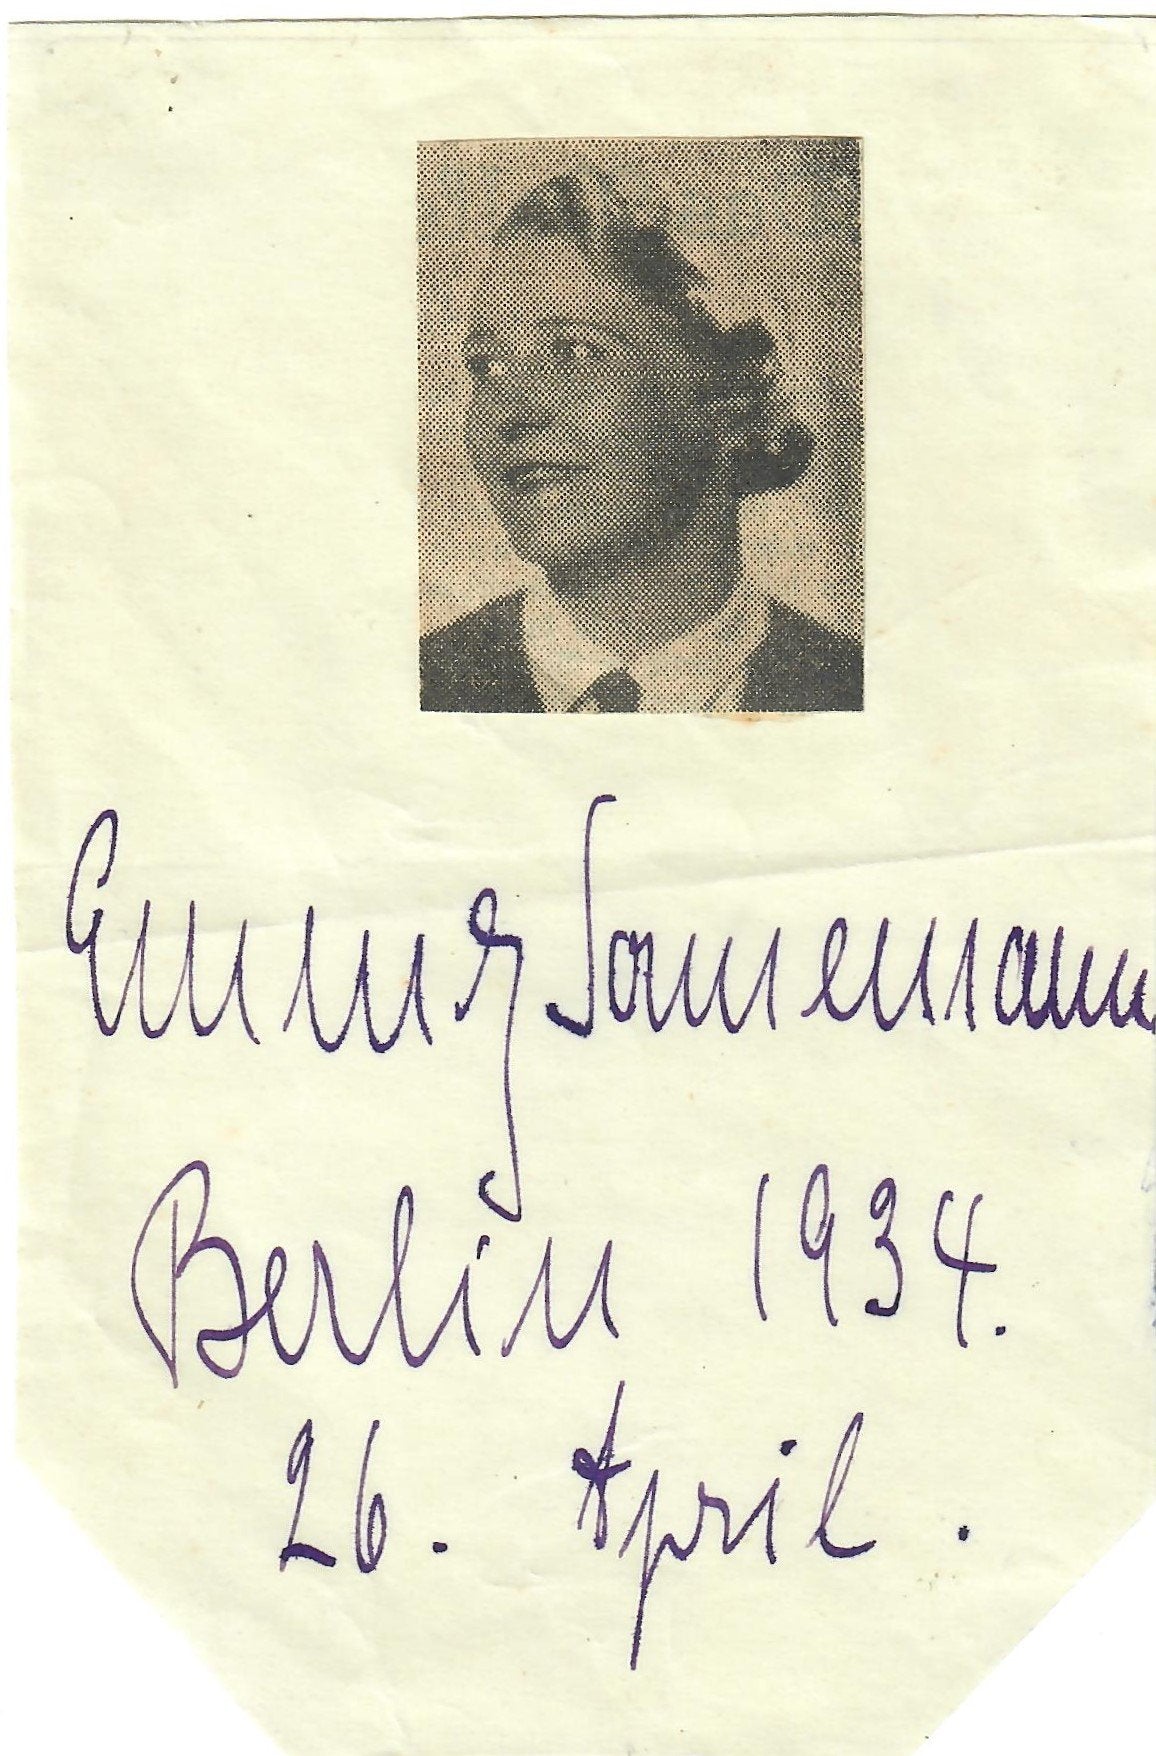 Emmy Sonnemann
Berlin 1934.
26. April.